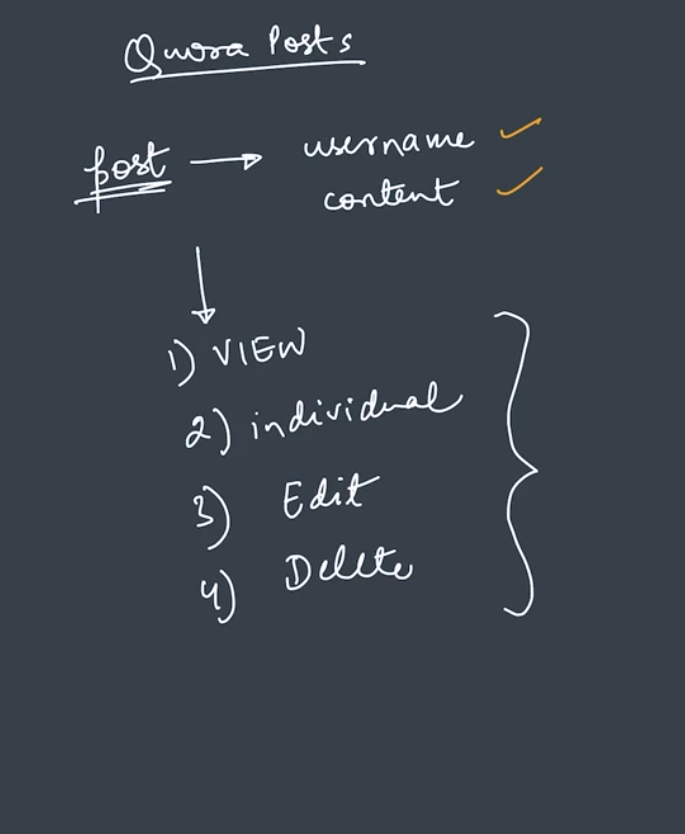 Quora Posts
post → username ✓
content ✓
↓
1) VIEW
2) individual
3) Edit
4) Delete